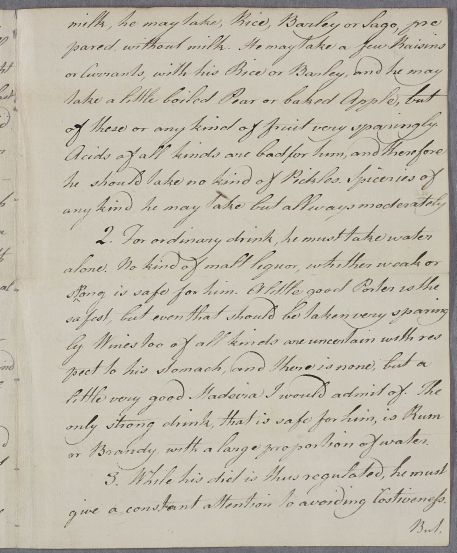 milk, he may take, Rice, Barley or Sago, pre
pared, without milk. He may take a few Raisins
or Currants, with his Rice or Barley, and he may
take a little boiled Pear or baked Apple, but
of these or any kind of fruit very sparingly.
Acids of all kinds are bad for him, and therefore
he should take no kind of Pickles. Spiceries of
any kind he may take but allways moderately
2. For ordinary drink, he must take water
alone. No kind of malt liquor, whither weak or
strong is safe for him. A little good Porter is the
safest, but even that should be taken very sparing
ly Wines too of all kinds are uncertain with res
pect to his stomach, and there is none, but a
little very good Madeira I would admit of. The
only strong drink, that is safe for him, is Rum
or Brandy, with a large proportion of water.
3. While his diet is thus regulated, he must
give a constant attention to avoiding Costiveness.
But.